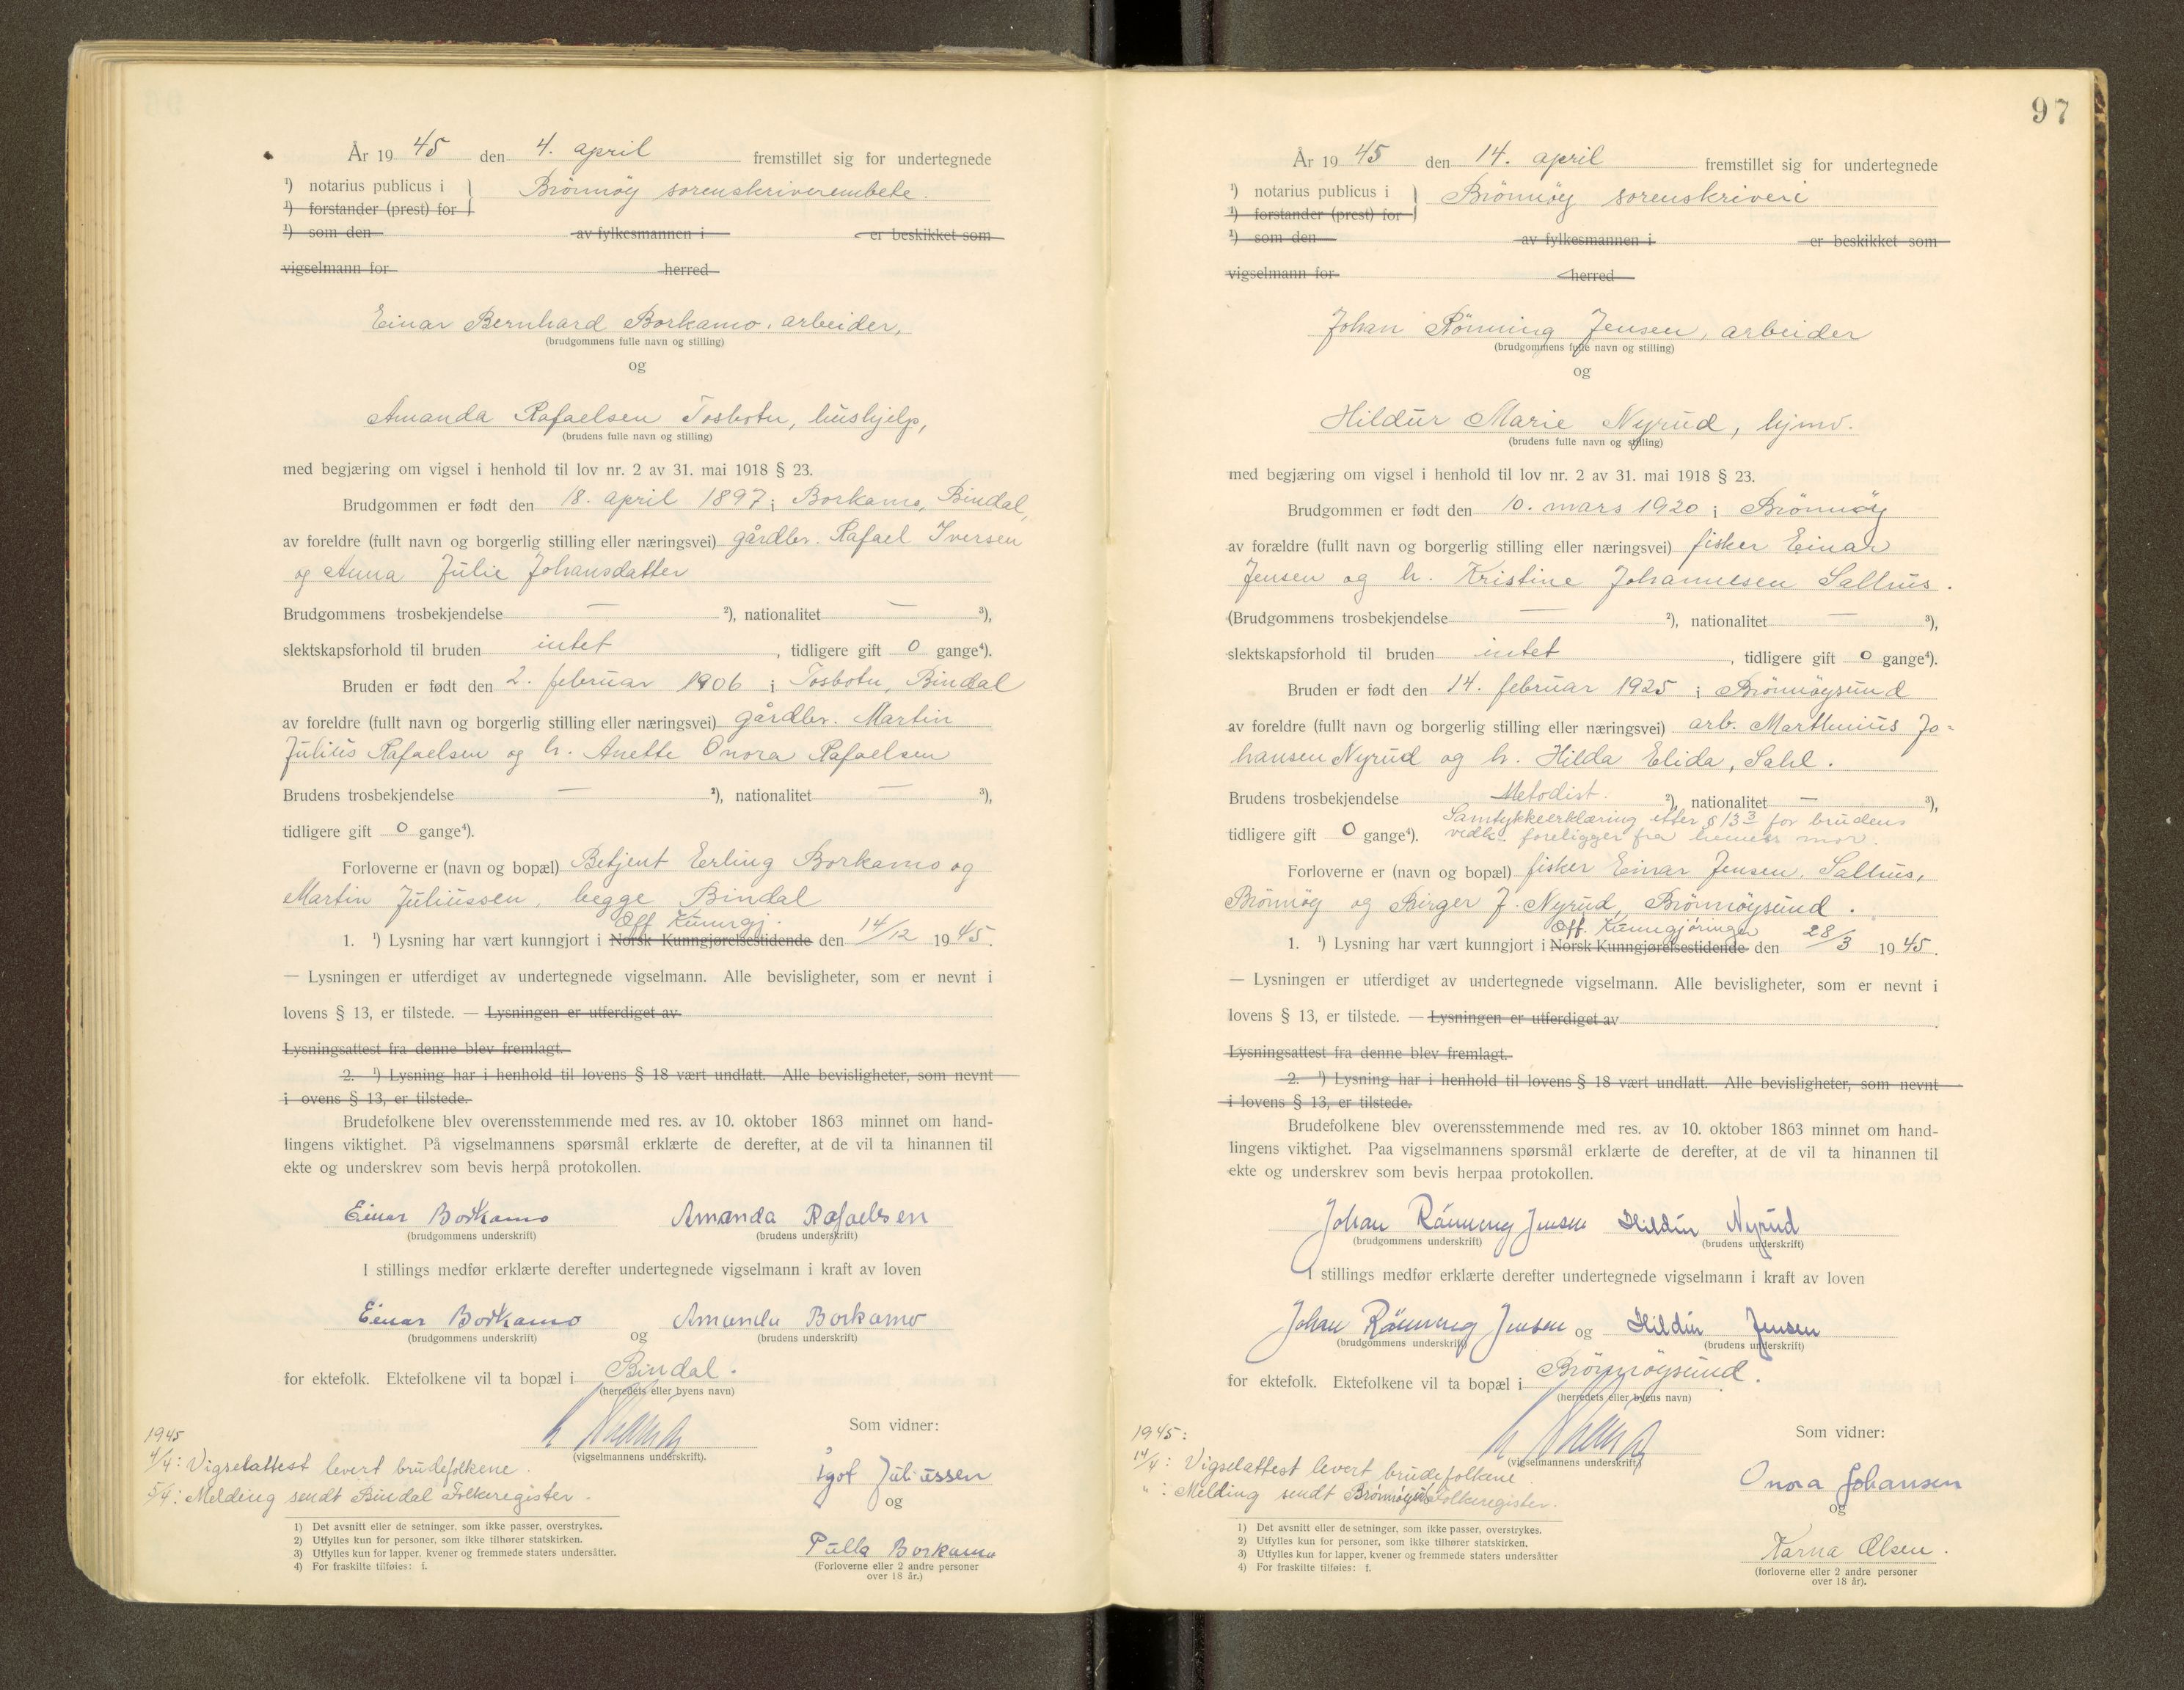 År 1945 den 4. april fremstillet sig for undertegnede
¹) notarius publicus i } Brönnöy sorenskriverembete.
¹) forstander (prest) for
¹) som den av fylkesmannen i er beskikket som
vigselmann for herred
Einar Bernhard Borkamo, arbeider,
(brudgommens fulle navn og stilling)
og
Amanda Rafaelsen Tosbotn, hushjelp,
(brudens fulle navn og stilling)
med begjæring om vigsel i henhold til lov nr. 2 av 31. mai 1918 § 23.
Brudgommen er født den 18. april 1897 i Borkamo, Bindal,
av foreldre (fullt navn og borgerlig stilling eller næringsvei) gårdbr. Rafael Iversen
og Anna Julie Johansdatter
Brudgommens trosbekjendelse — ²), nationalitet — ³),
slektskapsforhold til bruden intet, tidligere gift 0 gange⁴).
Bruden er født den 2. februar 1906 i Tosbotn, Bindal
av foreldre (fullt navn og borgerlig stilling eller næringsvei) gårdbr. Martin
Julius Rafaelsen og h. Anette Onora Rafaelsen
Brudens trosbekjendelse — ²), nationalitet — ³),
tidligere gift 0 gange⁴).
Forloverne er (navn og bopæl) Betjent Erling Borkamo og
Martin Juliussen, begge Bindal
Off Kunngj.
1. ¹) Lysning har vært kunngjort i Norsk Kunngjørelsestidende den 14/12 1945.
— Lysningen er utferdiget av undertegnede vigselmann. Alle bevisligheter, som er nevnt i
lovens § 13, er tilstede. — Lysningen er utferdiget av
Lysningsattest fra denne blev fremlagt.
2. ¹) Lysning har i henhold til lovens § 18 vært undlatt. Alle bevisligheter, som nevnt
i ovens § 13, er tilstede.
Brudefolkene blev overensstemmende med res. av 10. oktober 1863 minnet om hand-
lingens viktighet. På vigselmannens spørsmål erklærte de derefter, at de vil ta hinannen til
ekte og underskrev som bevis herpå protokollen.
Einar Borkamo Amanda Rafaelsen
(brudgommens underskrift) (brudens underskrift)
I stillings medfør erklærte derefter undertegnede vigselmann i kraft av loven
Einar Borkamo og Amanda Borkamo
(brudgommens underskrift) (brudens underskrift)
for ektefolk. Ektefolkene vil ta bopæl i Bindal.
(herredets eller byens navn)
Som vidner:
(vigselmannens underskrift).
1945
4/4: Vigselattest levert brudefolkene.
5/4: Melding sendt Bindal Folkeregister.
Juliussen
og
Borkamo
(Forloverne eller 2 andre personer
over 18 år.)
1) Det avsnitt eller de setninger, som ikke passer, overstrykes.
2) Utfylles kun for personer, som ikke tilhører statskirken.
3) Utfylles kun for lapper, kvener og fremmede staters undersåtter.
4) For fraskilte tilføies: f.
97
År 1945 den 14. april fremstillet sig for undertegnede
¹) notarius publicus i } Brönnöy sorenskriveri
¹) forstander (prest) for
¹) som den av fylkesmannen i er beskikket som
vigselmann for herred
Johan Rönning Jensen, arbeider
(brudgommens fulle navn og stilling)
og
Hildur Marie Nyrud, hjmv.
(brudens fulle navn og stilling)
med begjæring om vigsel i henhold til lov nr. 2 av 31. mai 1918 § 23.
Brudgommen er født den 10. mars 1920 i Brönnöy
av forældre (fullt navn og borgerlig stilling eller næringsvei) fisker Einar
Jensen og h. Kristine Johannesen Salhus.
(Brudgommens trosbekjendelse — ²), nationalitet — ³),
slektskapsforhold til bruden intet, tidligere gift 0 gange⁴).
Bruden er født den 14. februar 1925 i Brönnöysund
av foreldre (fullt navn og borgerlig stilling eller næringsvei) arb. Marthinius Jo-
hansen Nyrud og h. Hilda Elida, Sahl.
Brudens trosbekjendelse Metodist. ²), nationalitet — ³),
Samtykkeerklæring etter § 13³ for brudens
tidligere gift 0 gange⁴). vedk. foreligger fra hennes mor.
Forloverne er (navn og bopæl) fisker Einar Jensen, Salhus,
Brönnöy og Birger J. Nyrud, Brönnöysund.
Off. Kunngjöringer
1. ¹) Lysning har vært kunngjort i Norsk Kunngjørelsestidende den 28/3 1945.
— Lysningen er utferdiget av undertegnede vigselmann. Alle bevisligheter, som er nevnt i
lovens § 13, er tilstede. — Lysningen er utferdiget av
Lysningsattest fra denne blev fremlagt.
2. ¹) Lysning har i henhold til lovens § 18 vært undlatt. Alle bevisligheter, som nevnt
i lovens § 13, er tilstede.
Brudefolkene blev overensstemmende med res. av 10. oktober 1863 minnet om hand-
lingens viktighet. Paa vigselmannens spørsmål erklærte de derefter, at de vil ta hinannen til
ekte og underskrev som bevis herpaa protokollen.
Johan Rönning Jensen Hildur Nyrud
(brudgommens underskrift) (brudens underskrift)
I stillings medfør erklærte derefter undertegnede vigselmann i kraft av loven
Johan Rönning Jensen og Hildur Jensen
(brudgommens underskrift) (brudens underskrift)
for ektefolk. Ektefolkene vil ta bopæl i Brönnöysund.
(herredets eller byens navn)
Som vidner:
(vigselmannens underskrift)
1945:
14/4: Vigselattest levert brudefolkene.
" : Melding sendt Brönnöysund Folkeregister.
Onora Johansen
og
Karna Olsen.
(forloverne eller 2 andre personer
over 18 år).
1) Det avsnitt eller de setninger, som ikke passer, overstrykes.
2) Utfylles kun for personer, som ikke tilhører statskirken.
3) Utfylles kun for lapper, kvener og fremmede staters undersåtter
4) For fraskilte tilføies: f.